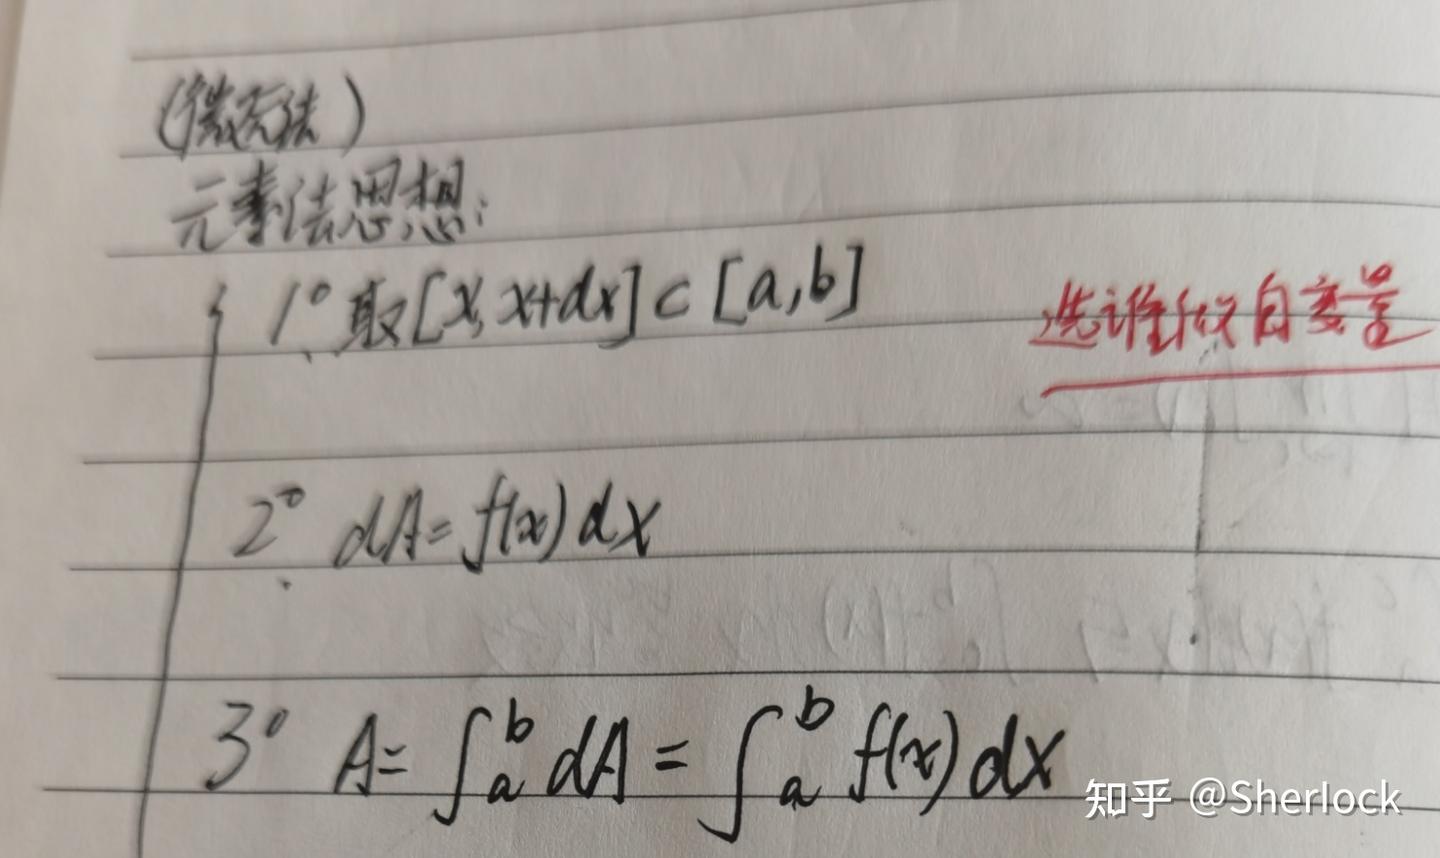 (微元法)
元素法思想:
1° 取[x, x+dx]⊂[a,b]
选谁做自变量
2° dA=f(x)dx
3° A=∫_a^b dA=∫_a^b f(x)dx
知乎 @Sherlock